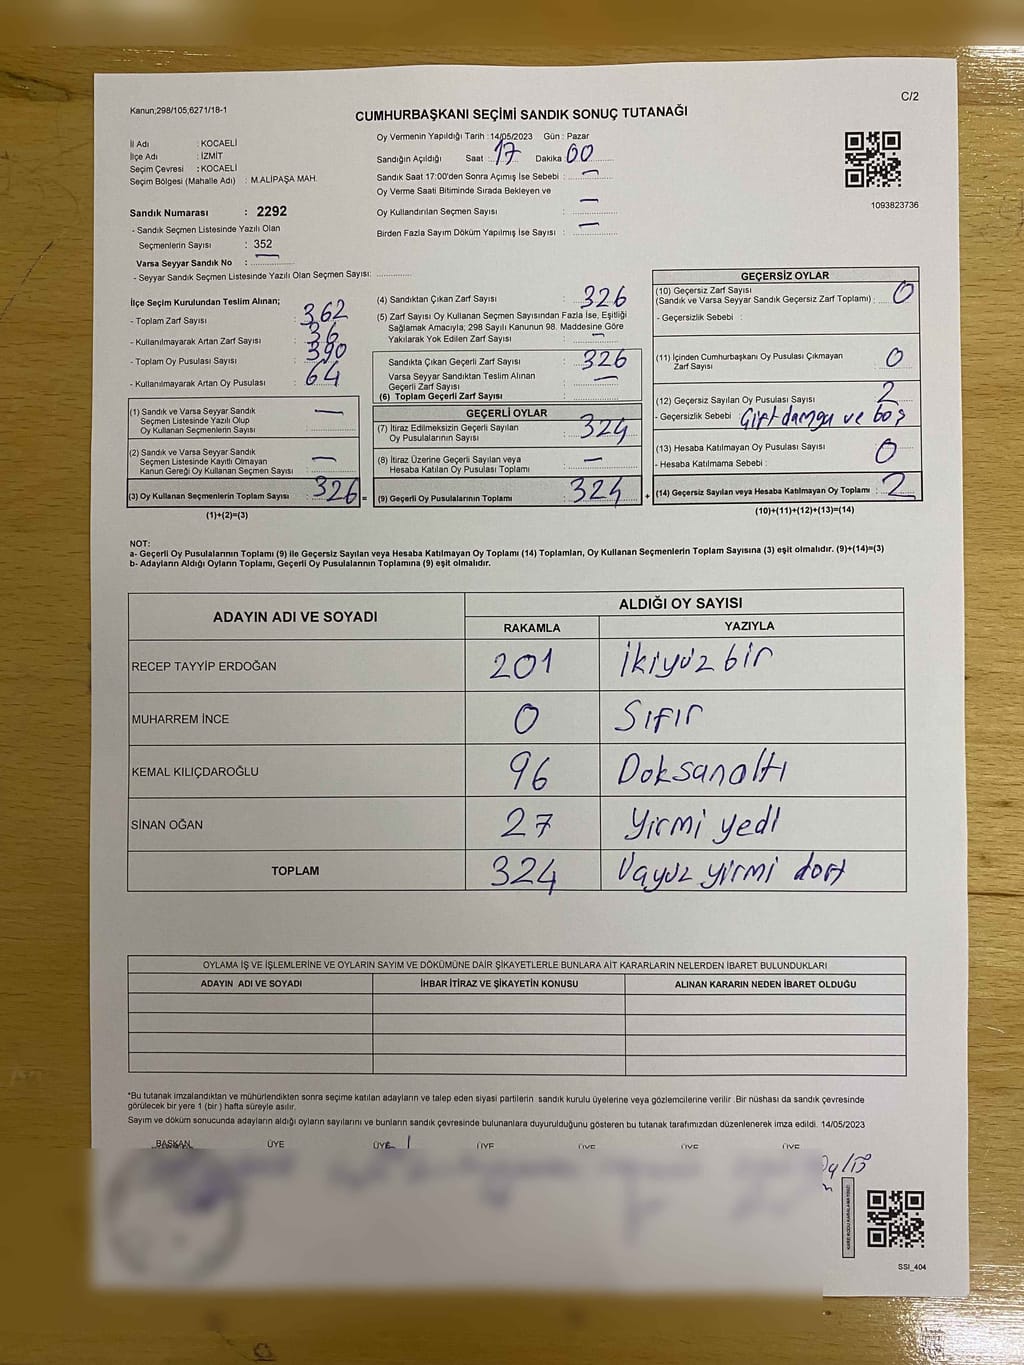 Kanun,298/105,6271/18-1
C/2
CUMHURBAŞKANI SEÇİMİ SANDIK SONUÇ TUTANAĞI
İl Adı : KOCAELİ
İlçe Adı : İZMİT
Seçim Çevresi : KOCAELİ
Seçim Bölgesi (Mahalle Adı) : M.ALİPAŞA MAH.
Sandık Numarası : 2292
- Sandık Seçmen Listesinde Yazılı Olan
Seçmenlerin Sayısı : 352
Varsa Seyyar Sandık No : —
- Seyyar Sandık Seçmen Listesinde Yazılı Olan Seçmen Sayısı:
Oy Vermenin Yapıldığı Tarih : 14/05/2023 Gün : Pazar
Sandığın Açıldığı Saat : 17 Dakika 00
Sandık Saat 17:00'den Sonra Açımış İse Sebebi : —
Oy Verme Saati Bitiminde Sırada Bekleyen ve
Oy Kullandırılan Seçmen Sayısı : —
Birden Fazla Sayım Döküm Yapılmış İse Sayısı : —
1093823736
İlçe Seçim Kurulundan Teslim Alınan;
- Toplam Zarf Sayısı : 362
- Kullanılmayarak Artan Zarf Sayısı : 36
- Toplam Oy Pusulası Sayısı : 390
- Kullanılmayarak Artan Oy Pusulası : 64
(1) Sandık ve Varsa Seyyar Sandık
Seçmen Listesinde Yazılı Olup
Oy Kullanan Seçmenlerin Sayısı : —
(2) Sandık ve Varsa Seyyar Sandık
Seçmen Listesinde Kayıtlı Olmayan
Kanun Gereği Oy Kullanan Seçmen Sayısı : —
(3) Oy Kullanan Seçmenlerin Toplam Sayısı : 326 =
(1)+(2)=(3)
(4) Sandıktan Çıkan Zarf Sayısı : 326
(5) Zarf Sayısı Oy Kullanan Seçmen Sayısından Fazla İse, Eşitliği
Sağlamak Amacıyla; 298 Sayılı Kanunun 98. Maddesine Göre
Yakılarak Yok Edilen Zarf Sayısı : —
Sandıkta Çıkan Geçerli Zarf Sayısı : 326
Varsa Seyyar Sandıktan Teslim Alınan
Geçerli Zarf Sayısı : —
(6) Toplam Geçerli Zarf Sayısı :
GEÇERLİ OYLAR
(7) İtiraz Edilmeksizin Geçerli Sayılan
Oy Pusulalarının Sayısı : 324
(8) İtiraz Üzerine Geçerli Sayılan veya
Hesaba Katılan Oy Pusulası Toplamı : —
(9) Geçerli Oy Pusulalarının Toplamı : 324 +
GEÇERSİZ OYLAR
(10) Geçersiz Zarf Sayısı
(Sandık ve Varsa Seyyar Sandık Geçersiz Zarf Toplamı) : 0
- Geçersizlik Sebebi :
(11) İçinden Cumhurbaşkanı Oy Pusulası Çıkmayan
Zarf Sayısı : 0
(12) Geçersiz Sayılan Oy Pusulası Sayısı : 2
- Geçersizlik Sebebi : Çift damga ve boş
(13) Hesaba Katılmayan Oy Pusulası Sayısı : 0
- Hesaba Katılmama Sebebi :
(14) Geçersiz Sayılan veya Hesaba Katılmayan Oy Toplamı : 2
(10)+(11)+(12)+(13)=(14)
NOT:
a- Geçerli Oy Pusulalarının Toplamı (9) ile Geçersiz Sayılan veya Hesaba Katılmayan Oy Toplamı (14) Toplamları, Oy Kullanan Seçmenlerin Toplam Sayısına (3) eşit olmalıdır. (9)+(14)=(3)
b- Adayların Aldığı Oyların Toplamı, Geçerli Oy Pusulalarının Toplamına (9) eşit olmalıdır.
ADAYIN ADI VE SOYADI
ALDIĞI OY SAYISI
RAKAMLA YAZIYLA
RECEP TAYYİP ERDOĞAN 201 İkiyüz bir
MUHARREM İNCE 0 Sıfır
KEMAL KILIÇDAROĞLU 96 Doksanaltı
SİNAN OĞAN 27 Yirmi yedi
TOPLAM 324 Üçyüz yirmi dört
OYLAMA İŞ VE İŞLEMLERİNE VE OYLARIN SAYIM VE DÖKÜMÜNE DAİR ŞİKAYETLERLE BUNLARA AİT KARARLARIN NELERDEN İBARET BULUNDUKLARI
ADAYIN ADI VE SOYADI İHBAR İTİRAZ VE ŞİKAYETİN KONUSU ALINAN KARARIN NEDEN İBARET OLDUĞU
*Bu tutanak imzalandıktan ve mühürlendikten sonra seçime katılan adayların ve talep eden siyasi partilerin sandık kurulu üyelerine veya gözlemcilerine verilir .Bir nüshası da sandık çevresinde
görülecek bir yere 1 (bir ) hafta süreyle asılır.
Sayım ve döküm sonucunda adayların aldığı oyların sayılarını ve bunların sandık çevresinde bulunanlara duyurulduğunu gösteren bu tutanak tarafımızdan düzenlenerek imza edildi. 14/05/2023
BAŞKAN ÜYE ÜYE ÜYE ÜYE ÜYE ÜYE
SSI_404